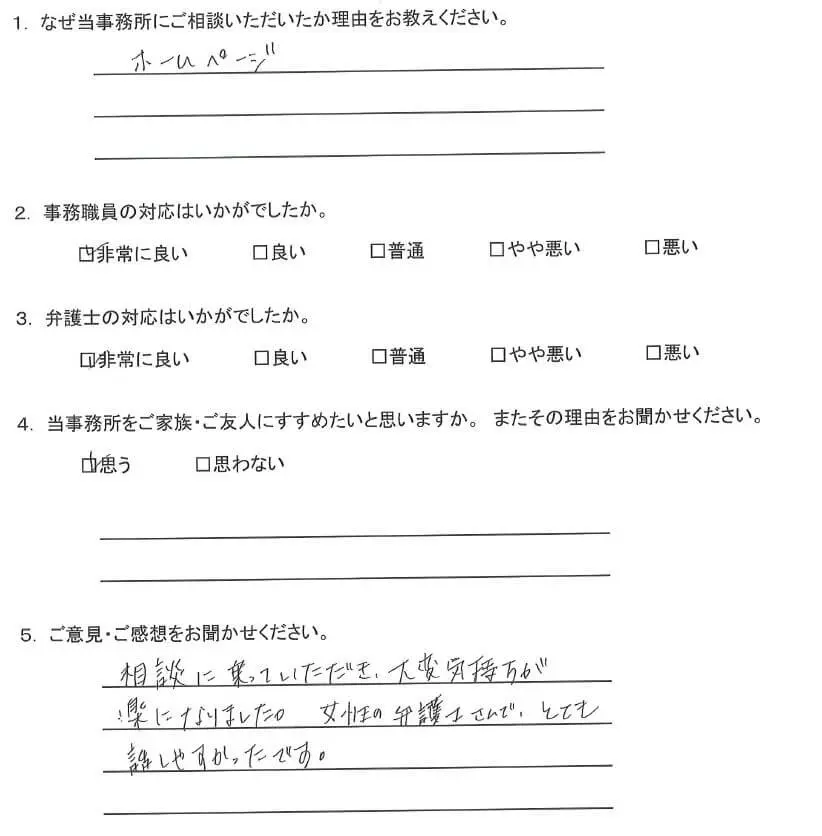 1. なぜ当事務所にご相談いただいたか理由をお教えください。
ホームページ
2. 事務職員の対応はいかがでしたか。
☑非常に良い □良い □普通 □やや悪い □悪い
3. 弁護士の対応はいかがでしたか。
☑非常に良い □良い □普通 □やや悪い □悪い
4. 当事務所をご家族・ご友人にすすめたいと思いますか。 またその理由をお聞かせください。
☑思う □思わない
5. ご意見・ご感想をお聞かせください。
相談に乗っていただき、大変気持ちが
楽になりました。 女性の弁護士さんで、とても
話しやすかったです。